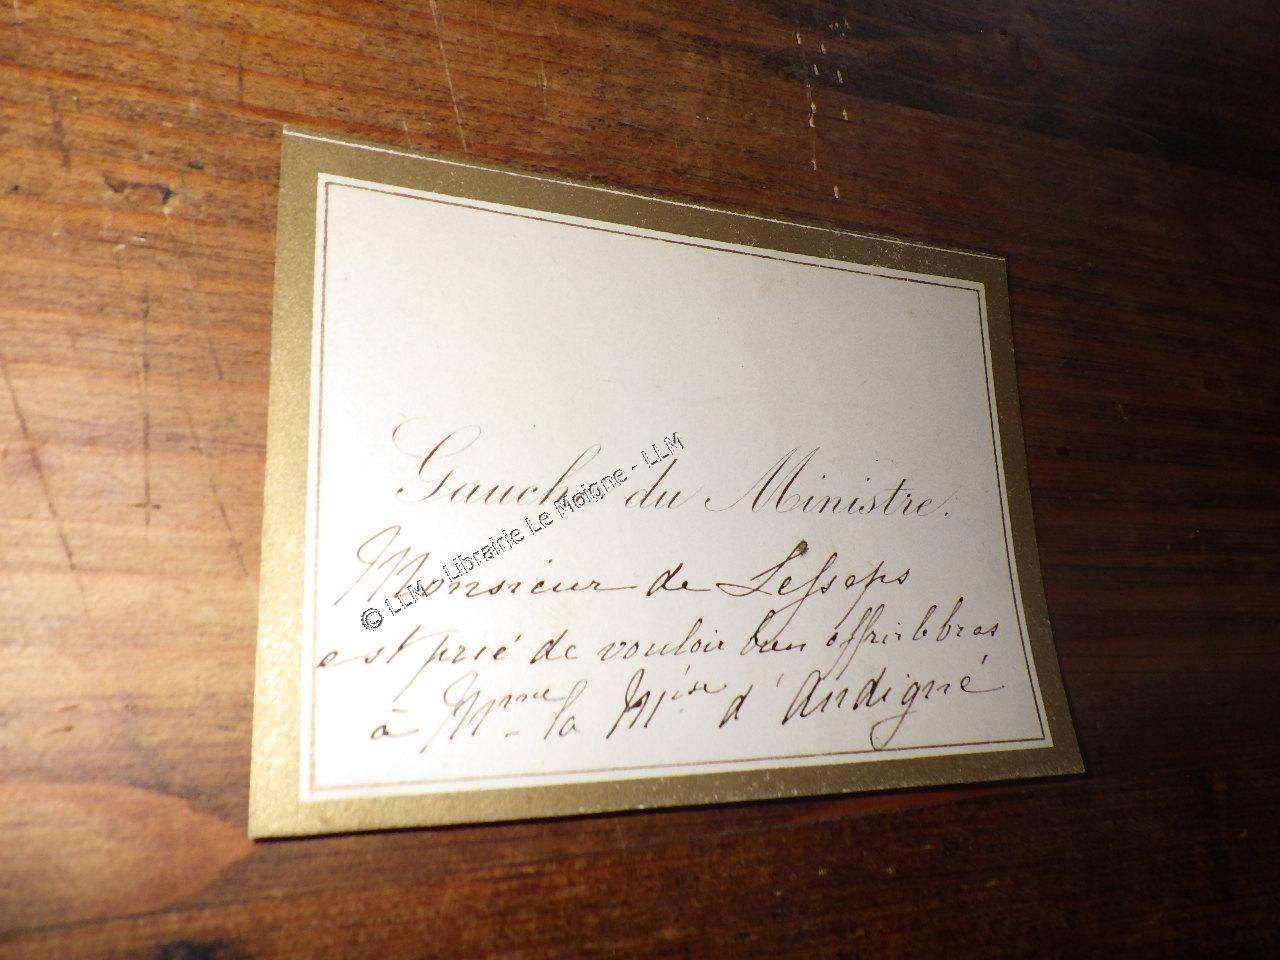 Gauche du Ministre.
Monsieur de Lesseps
est prié de vouloir bien offrir le bras
à Mme la Mise d'Andigné
© LLM - Librairie Le Moigne - LLM